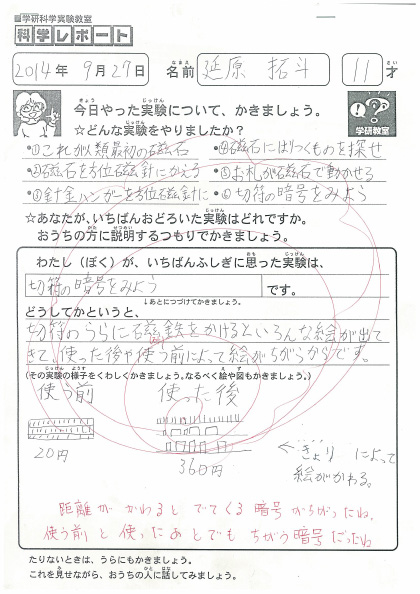 学研科学実験教室
科学レポート
2014年 9月27日 名前 延原 拓斗 11才
なまえ さい
きょう じっけん
今日やった実験について、かきましょう。
☆どんな実験をやりましたか?
学研教室
・①これが人類最初の磁石 ・④磁石にはりつくものを探せ
・②磁石を方位磁針にかえろ ・⑤お札が磁石で動かせる
・③針金ハンガーを方位磁針に ・⑥切符の暗号をみよう
☆あなたが、いちばんおどろいた実験はどれですか。
おうちの方に説明するつもりでかきましょう。
わたし(ぼく)が、いちばんふしぎに思った実験は、
切符の暗号をみよう です。
↓あとにつづけてかきましょう。
どうしてかというと、
切符のうらに石磁鉄をかけるといろんな絵が出て
きて、使った後や使う前によって絵がちがうからです。
(その実験の様子をくわしくかきましょう。なるべく絵や図もかきましょう。)
使う前 使った後
20円 360円
←きょり によって
絵がかわる。
距離が かわると でてくる 暗号が ちがったね。
使う前 と 使った あとでも ちがう 暗号だったね
たりないときは、うらにもかきましょう。
これを見せながら、おうちの人に話してみましょう。